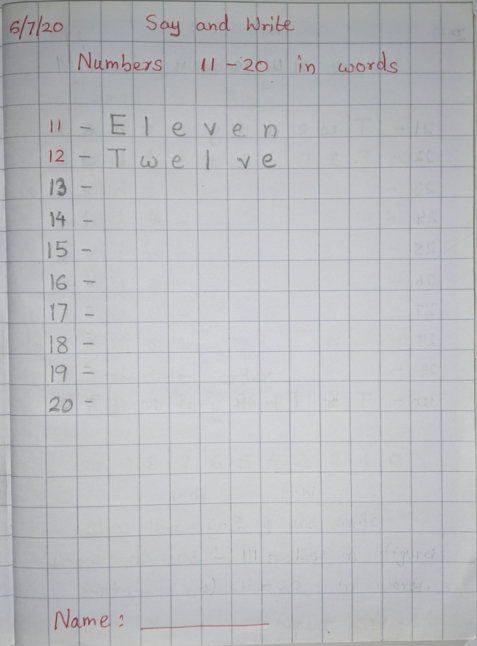 6/7/20 Say and Write
Numbers 11-20 in words
11 - Eleven
12 - Twelve
13 -
14 -
15 -
16 -
17 -
18 -
19 -
20 -
Name: ________